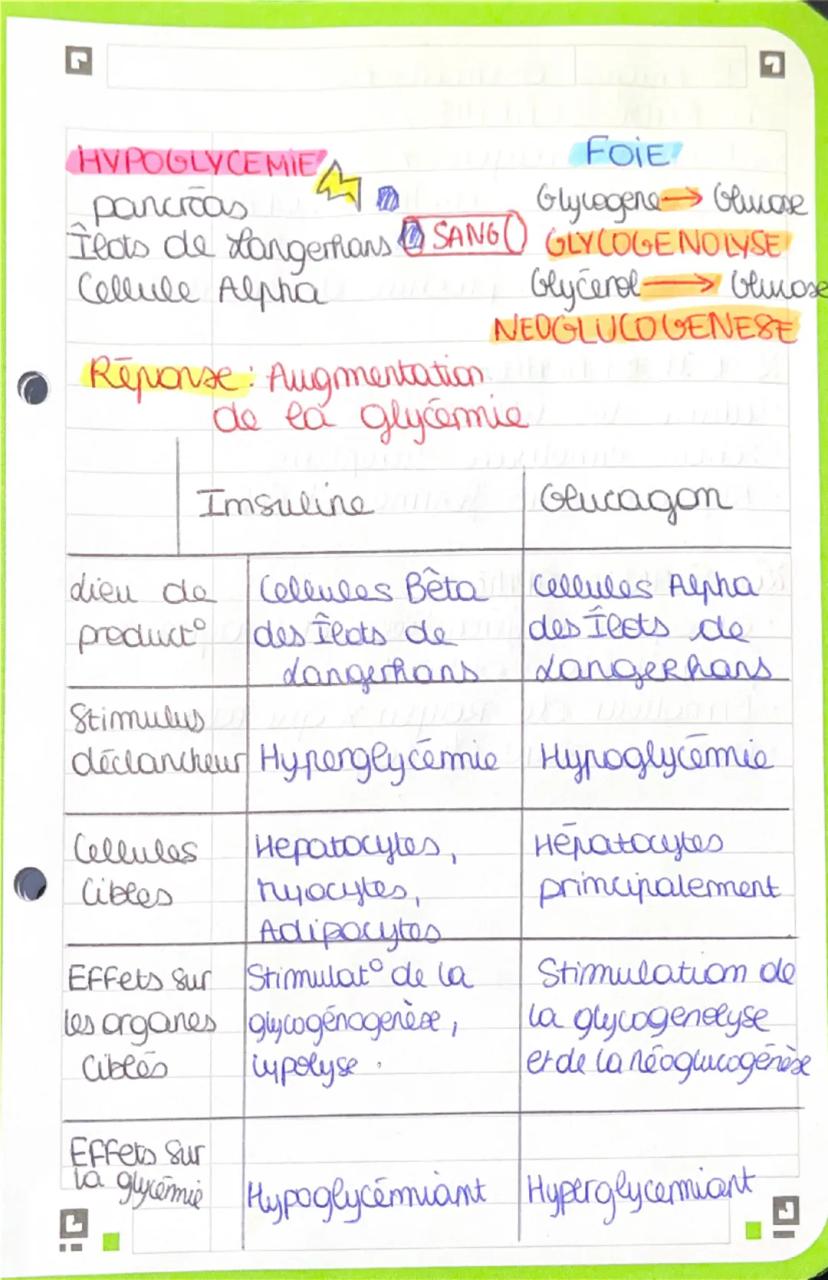 HYPOGLYCEMIE
FOIE
pancréas
Glycogene → Glucose
Îlots de Langerhans SANG
GLYCOGENOLYSE
Cellule Alpha
Glycérol → Glucose
NEOGLUCOGENESE
Réponse : Augmentation
de la glycémie
Imsuline
Glucagon
Lieu de
product°
Cellules Bêta
des Îlots de
Langerhans
Cellules Alpha
des Îlots de
Langerhans
Stimulus
déclancheur
Hyperglycémie
Hypoglycémie
Cellules
Cibles
Hepatocytes,
Myocytes,
Adipocytes
Hépatocytes
principalement
Effets sur
les organes
ciblés
Stimulat° de la
glycogénogenèse,
lypolyse.
Stimulation de
la glycogenolyse
et de la néoglucogénèse
Effets sur
la glycémie
Hypoglycémiant
Hyperglycemiant